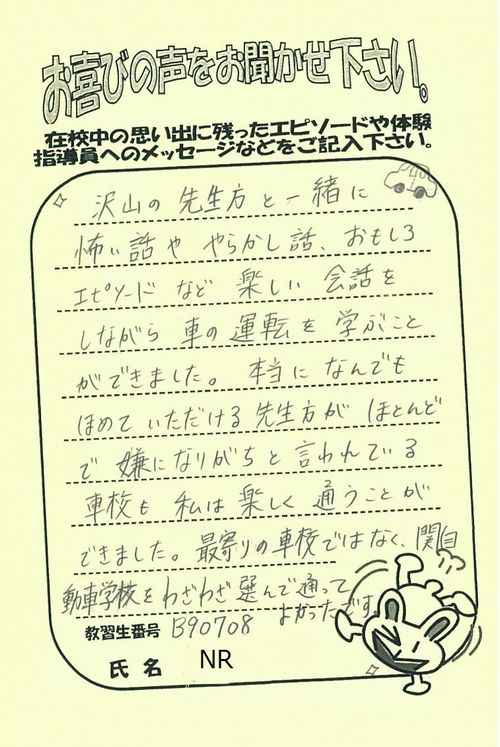 お喜びの声をお聞かせ下さい。
在校中の思い出に残ったエピソードや体験
指導員へのメッセージなどをご記入下さい。
沢山の先生方と一緒に
怖い話ややらかし話、おもしろ
エピソードなど楽しい会話を
しながら車の運転を学ぶこと
ができました。本当になんでも
ほめていただける先生方がほとんど
で嫌になりがちと言われている
車校も私は楽しく通うことが
できました。最寄りの車校ではなく、関自
動車学校をわざわざ選んで通って
よかったです。
教習生番号 B90708
氏名 NR